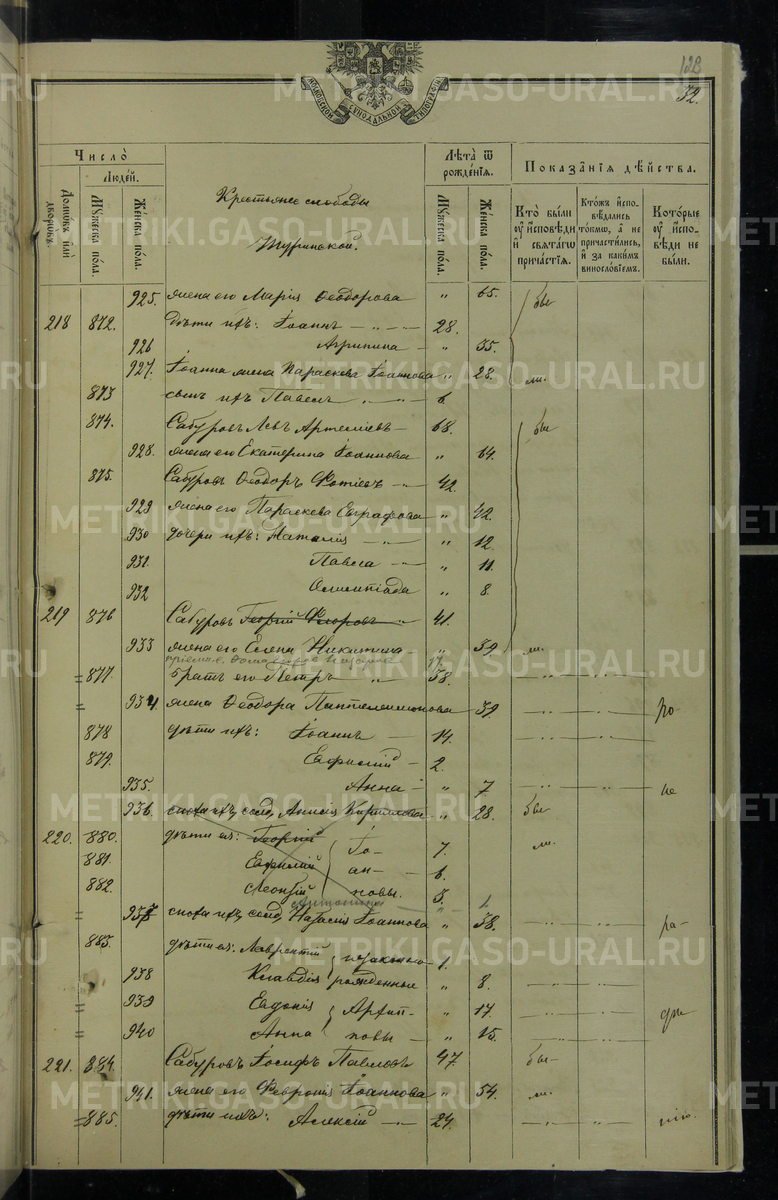 128
32.
Число̀
Людей.
Домѡвъ илѝ дворѡвъ.
Мꙋжеска пола.
Женска пола.
Крестьяне слободы
Туринской.
Лѣта̀ ѿ рожденїѧ.
Мꙋжеска пола.
Женска пола.
Показанїѧ дѣйства.
Кто̀ были ᲂу҆ и҆сповѣди и҆ свѧтагѡ причастїѧ.
Ктожъ и҆сповѣдались токмѡ, а҆ не причастились, и҆ за какимъ винословїемъ.
Которые ᲂу҆ и҆сповѣди не были.
925. жена его Марія Ѳеодорова " 65. бы
218 872. дѣти ихъ: Іоаннъ — " — 28.
926 Агрипина — " 35.
927. Іоанна жена Параскева Іоаннова " 23. ли.
873 сынъ ихъ Павелъ " — " — 6.
874. Сабуровъ Левъ Артеміевъ — 68. бы
928. жена его Екатерина Іоаннова " 64.
875. Сабуровъ Ѳеодоръ Фотіевъ — " — 42.
929 жена его Параскева Евграфова " 42.
930 дочери ихъ: Наталія — " — " 12.
931. Павла — " — " 11.
932 Олимпіада " 8.
219 876 Сабуровъ Георгій Флоровъ " 41.
933 жена его Елена Никитина — " 39 ли.
877. братъ его Петръ " 38. — " — — " —
934. жена Ѳеодора Пантелеимонова 39 — " — — " — ро
878 дѣти ихъ: Іоаннъ — 14. — " — — " —
879. Евфимій — 2.
935. Анна — " 7 — " — — " — не
936. сноха ихъ, солд. Анисія Кириллова " 28. бы
220. 880. дѣти ея: Георгій Іо- 7. ли.
881. Евфимій ан- 6.
882. Леонтій новы. 3.
Антонина " — 1
937 сноха ихъ, солд. Наталія Іоаннова " 38. — " — — " — ра-
883. дѣти ея: Лаврентій незаконно- 1.
938 Клавдія рожденные " 8. — " — — " —
939 Евдокія Архип- " 17. — " — — " —
940 Анна повы — " 15. — " — — " —
221. 884. Сабуровъ Іосифъ Павловъ 47. бы-
941. жена его Февронія Іоаннова " 54. ли.
885. дѣти ихъ: Алексій — " — 24. — " — — " — нію.
METRIKI.GASO-URAL.RU